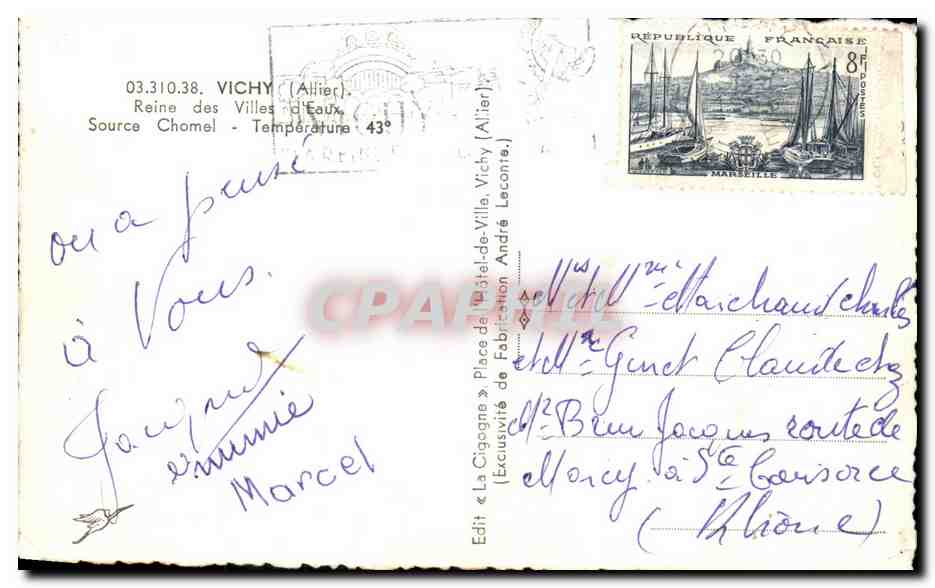 03.310.38. VICHY (Allier).
Reine des Villes d'Eaux.
Source Chomel - Température 43°
RÉPUBLIQUE FRANÇAISE
20 30
8F
POSTES
MARSEILLE
on a pensé
à Vous.
Jacques
mimie
Marcel
Edit « La Cigogne ». Place de l'Hôtel-de-Ville, Vichy (Allier)
(Exclusivité de Fabrication André Leconte.)
CPAPHIL
Mr et Mme Marchand Charles
et Mr Ginet Claude chez
Mr Brun Jacques route de
à Ste Consorce
(Rhône)